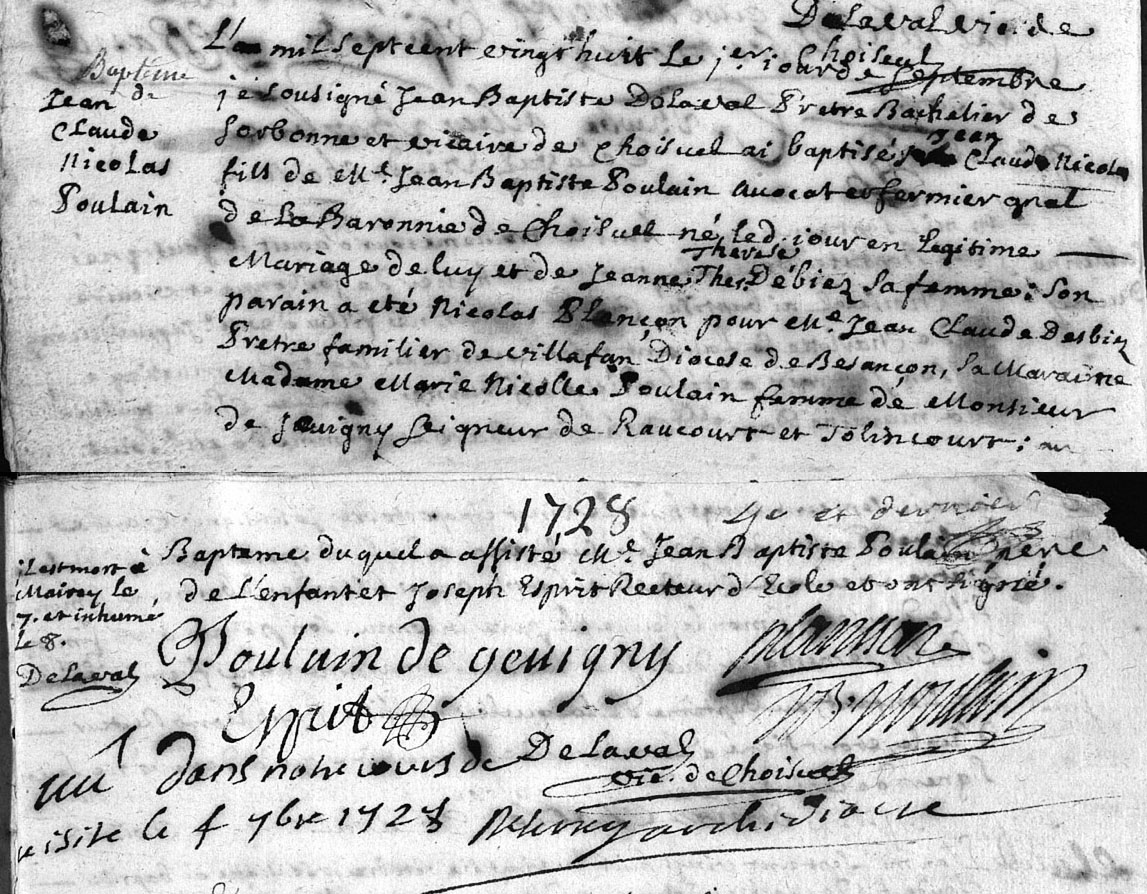 DeLaval vic. de
Choiseul
L'an mil sept cent vingt huit le jer. jour de Septembre
Baptéme
de
Jean
Claude
Nicolas
Poulain
je sousigné Jean Baptiste DeLaval Pretre Bachelier de
Sorbonne et vicaire de Choiseul ai baptisé Jean Claude Nicolas
fils de Mr. Jean Baptiste Poulain avocat et fermier gnal
de La Baronnie de Choiseul né led. jour en legitime
Mariage de luy et de Jeanne Therese Débiez sa femme; son
parain a eté Nicolas Plançon pour Me. Jean Claude Desbiez
Pretre familier de villafan Diocese de Besançon, sa Maraine
Madame Marie Nicolle Poulain femme de Monsieur
de Jevigny Seigneur de Raucourt et Tolincourt; au
1728
4e et dernier
Bapteme duquel a assisté Mr. Jean Baptiste Poulain pere
de L'enfant et Joseph Esprit Recteur d'Ecole et ont signé.
il est mort à
Mairey le
7. et inhumé
le 8.
DeLaval
Poulain de gevigny
plancon
Esprit
JB poulain
DeLaval
vic. de Choiseul
vu dans notre cours de
visite le 5 7bre 1728
archidiacre